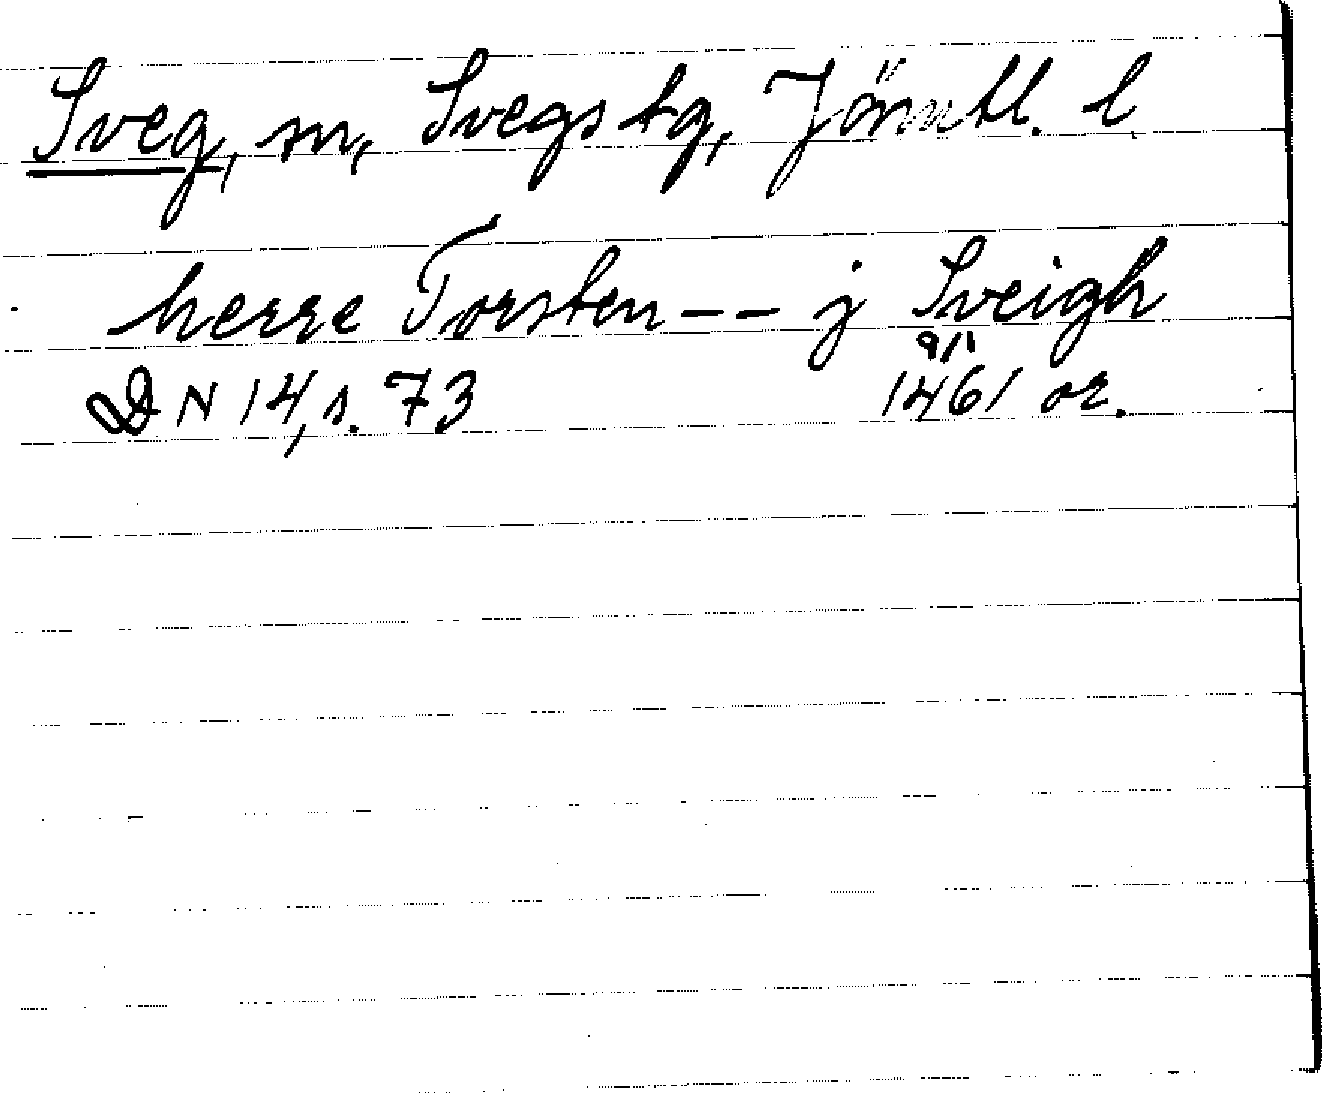 Sveg, sn, Svegs tg, Jämtl. l
herre Torsten -- j Sveigh
9/1
DN 14, s. 73 1461 or.